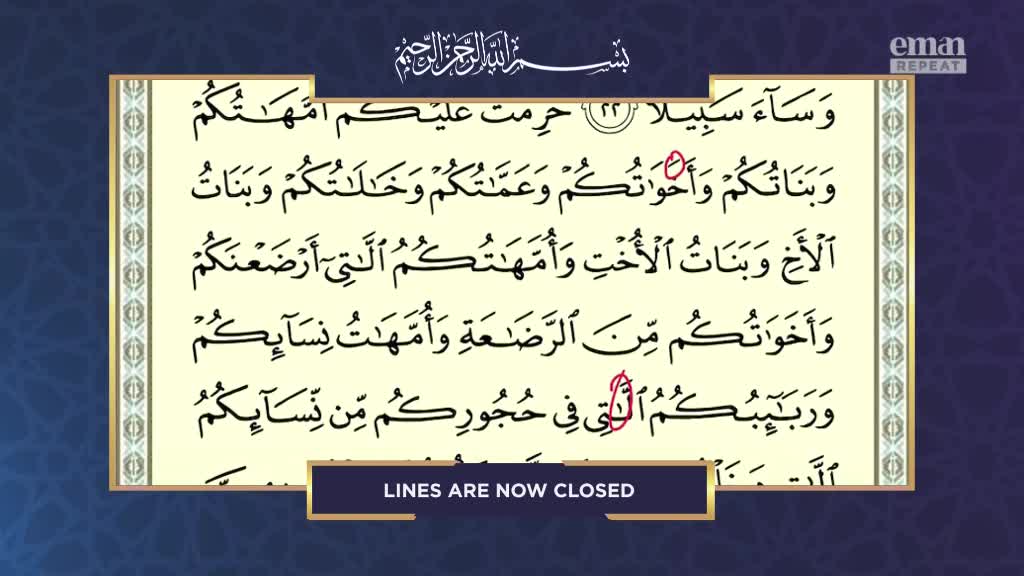 بِسْمِ اللَّهِ الرَّحْمَٰنِ الرَّحِيمِ
eman
REPEAT
وَسَآءَ سَبِيلًا ٢٢ حُرِّمَتْ عَلَيْكُمْ أُمَّهَٰتُكُمْ
وَبَنَاتُكُمْ وَأَخَوَٰتُكُمْ وَعَمَّٰتُكُمْ وَخَٰلَٰتُكُمْ وَبَنَاتُ
ٱلْأَخِ وَبَنَاتُ ٱلْأُخْتِ وَأُمَّهَٰتُكُمُ ٱلَّٰتِىٓ أَرْضَعْنَكُمْ
وَأَخَوَٰتُكُم مِّنَ ٱلرَّضَٰعَةِ وَأُمَّهَٰتُ نِسَآئِكُمْ
وَرَبَٰٓئِبُكُمُ ٱلَّٰتِى فِى حُجُورِكُم مِّن نِّسَآئِكُمُ
LINES ARE NOW CLOSED